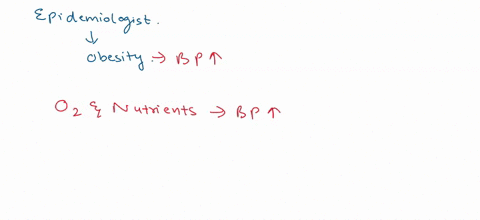 Epidemiologist.
↓
Obesity → BP ↑
O₂ & Nutrients → BP ↑